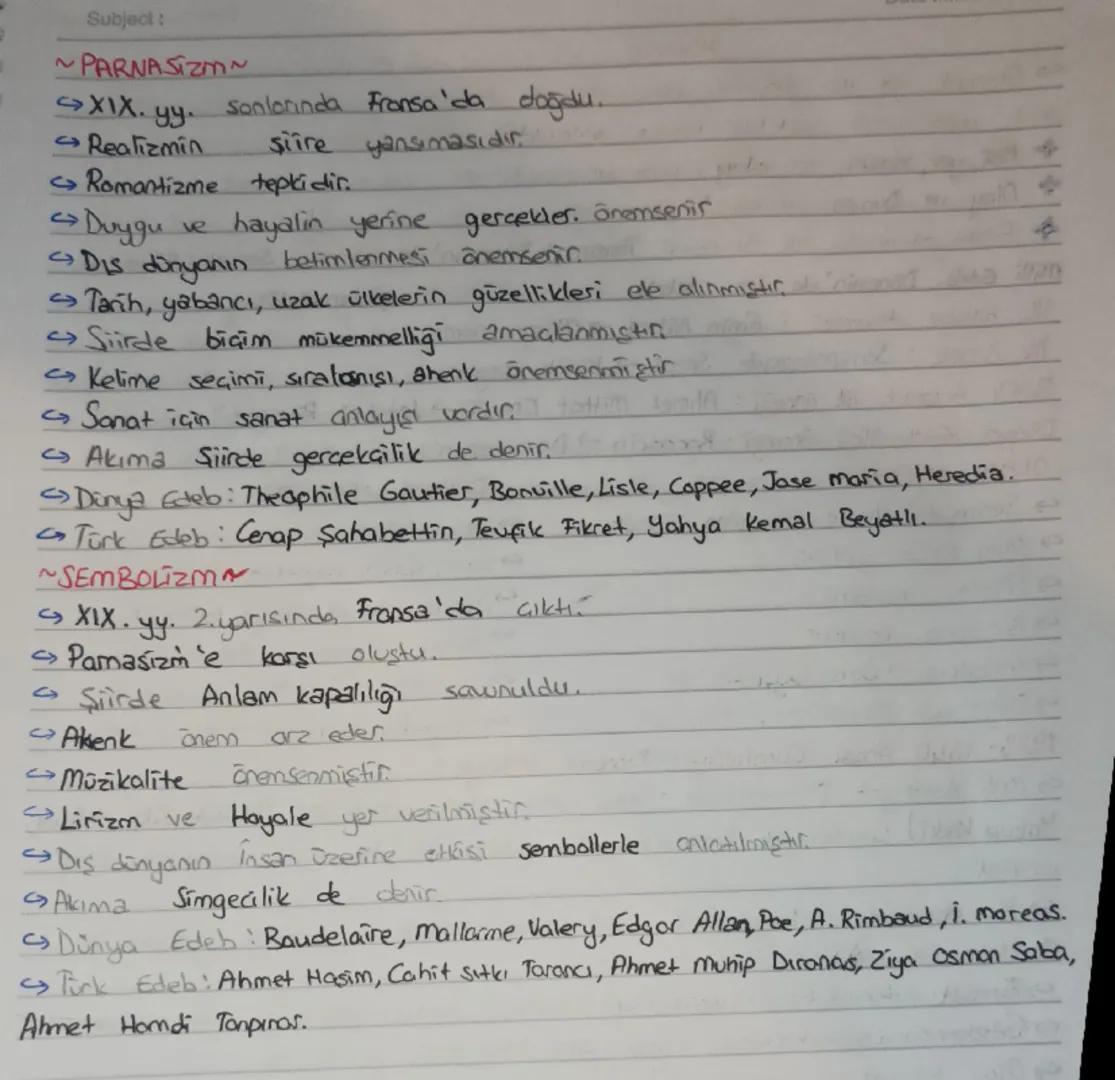 Subject:
~PARNASİZM~
↪ XIX. yy. sonlarında Fransa'da doğdu.
↪ Realizmin şiire yansımasıdır.
↪ Romantizme tepkidir.
↪ Duygu ve hayalin yerine gerçekler. önemsenir
↪ Dış dünyanın betimlenmesi önemsenir.
↪ Tarih, yabancı, uzak ülkelerin güzellikleri ele alınmıştır.
↪ Şiirde biçim mükemmelliği amaçlanmıştır.
↪ Kelime seçimi, sıralanışı, ahenk önemsenmiştir
↪ Sanat için sanat anlayışı vardır.
↪ Akıma Şiirde gerçekçilik de denir.
↪ Dünya Edeb: Theophile Gautier, Bonville, Lisle, Coppee, Jase maria, Heredia.
↪ Türk Edeb: Cenap Şahabettin, Tevfik Fikret, Yahya Kemal Beyatlı.
~SEMBOLİZM~
↪ XIX. yy. 2. yarısında Fransa'da çıktı.
↪ Parnasizm'e karşı oluştu.
↪ Şiirde Anlam kapalılığı savunuldu.
↪ Ahenk önem arz eder.
↪ Müzikalite önemsenmiştir.
↪ Lirizm ve Hayale yer verilmiştir.
↪ Dış dünyanın insan üzerine etkisi sembollerle anlatılmıştır.
↪ Akıma Simgecilik de denir.
↪ Dünya Edeb: Baudelaire, Mallarme, Valery, Edgar Allan Poe, A. Rimbaud, İ. moreas.
↪ Türk Edeb: Ahmet Haşim, Cahit sıtkı Tarancı, Ahmet Muhip Dıranas, Ziya Osman Saba,
Ahmet Hamdi Tanpınar.